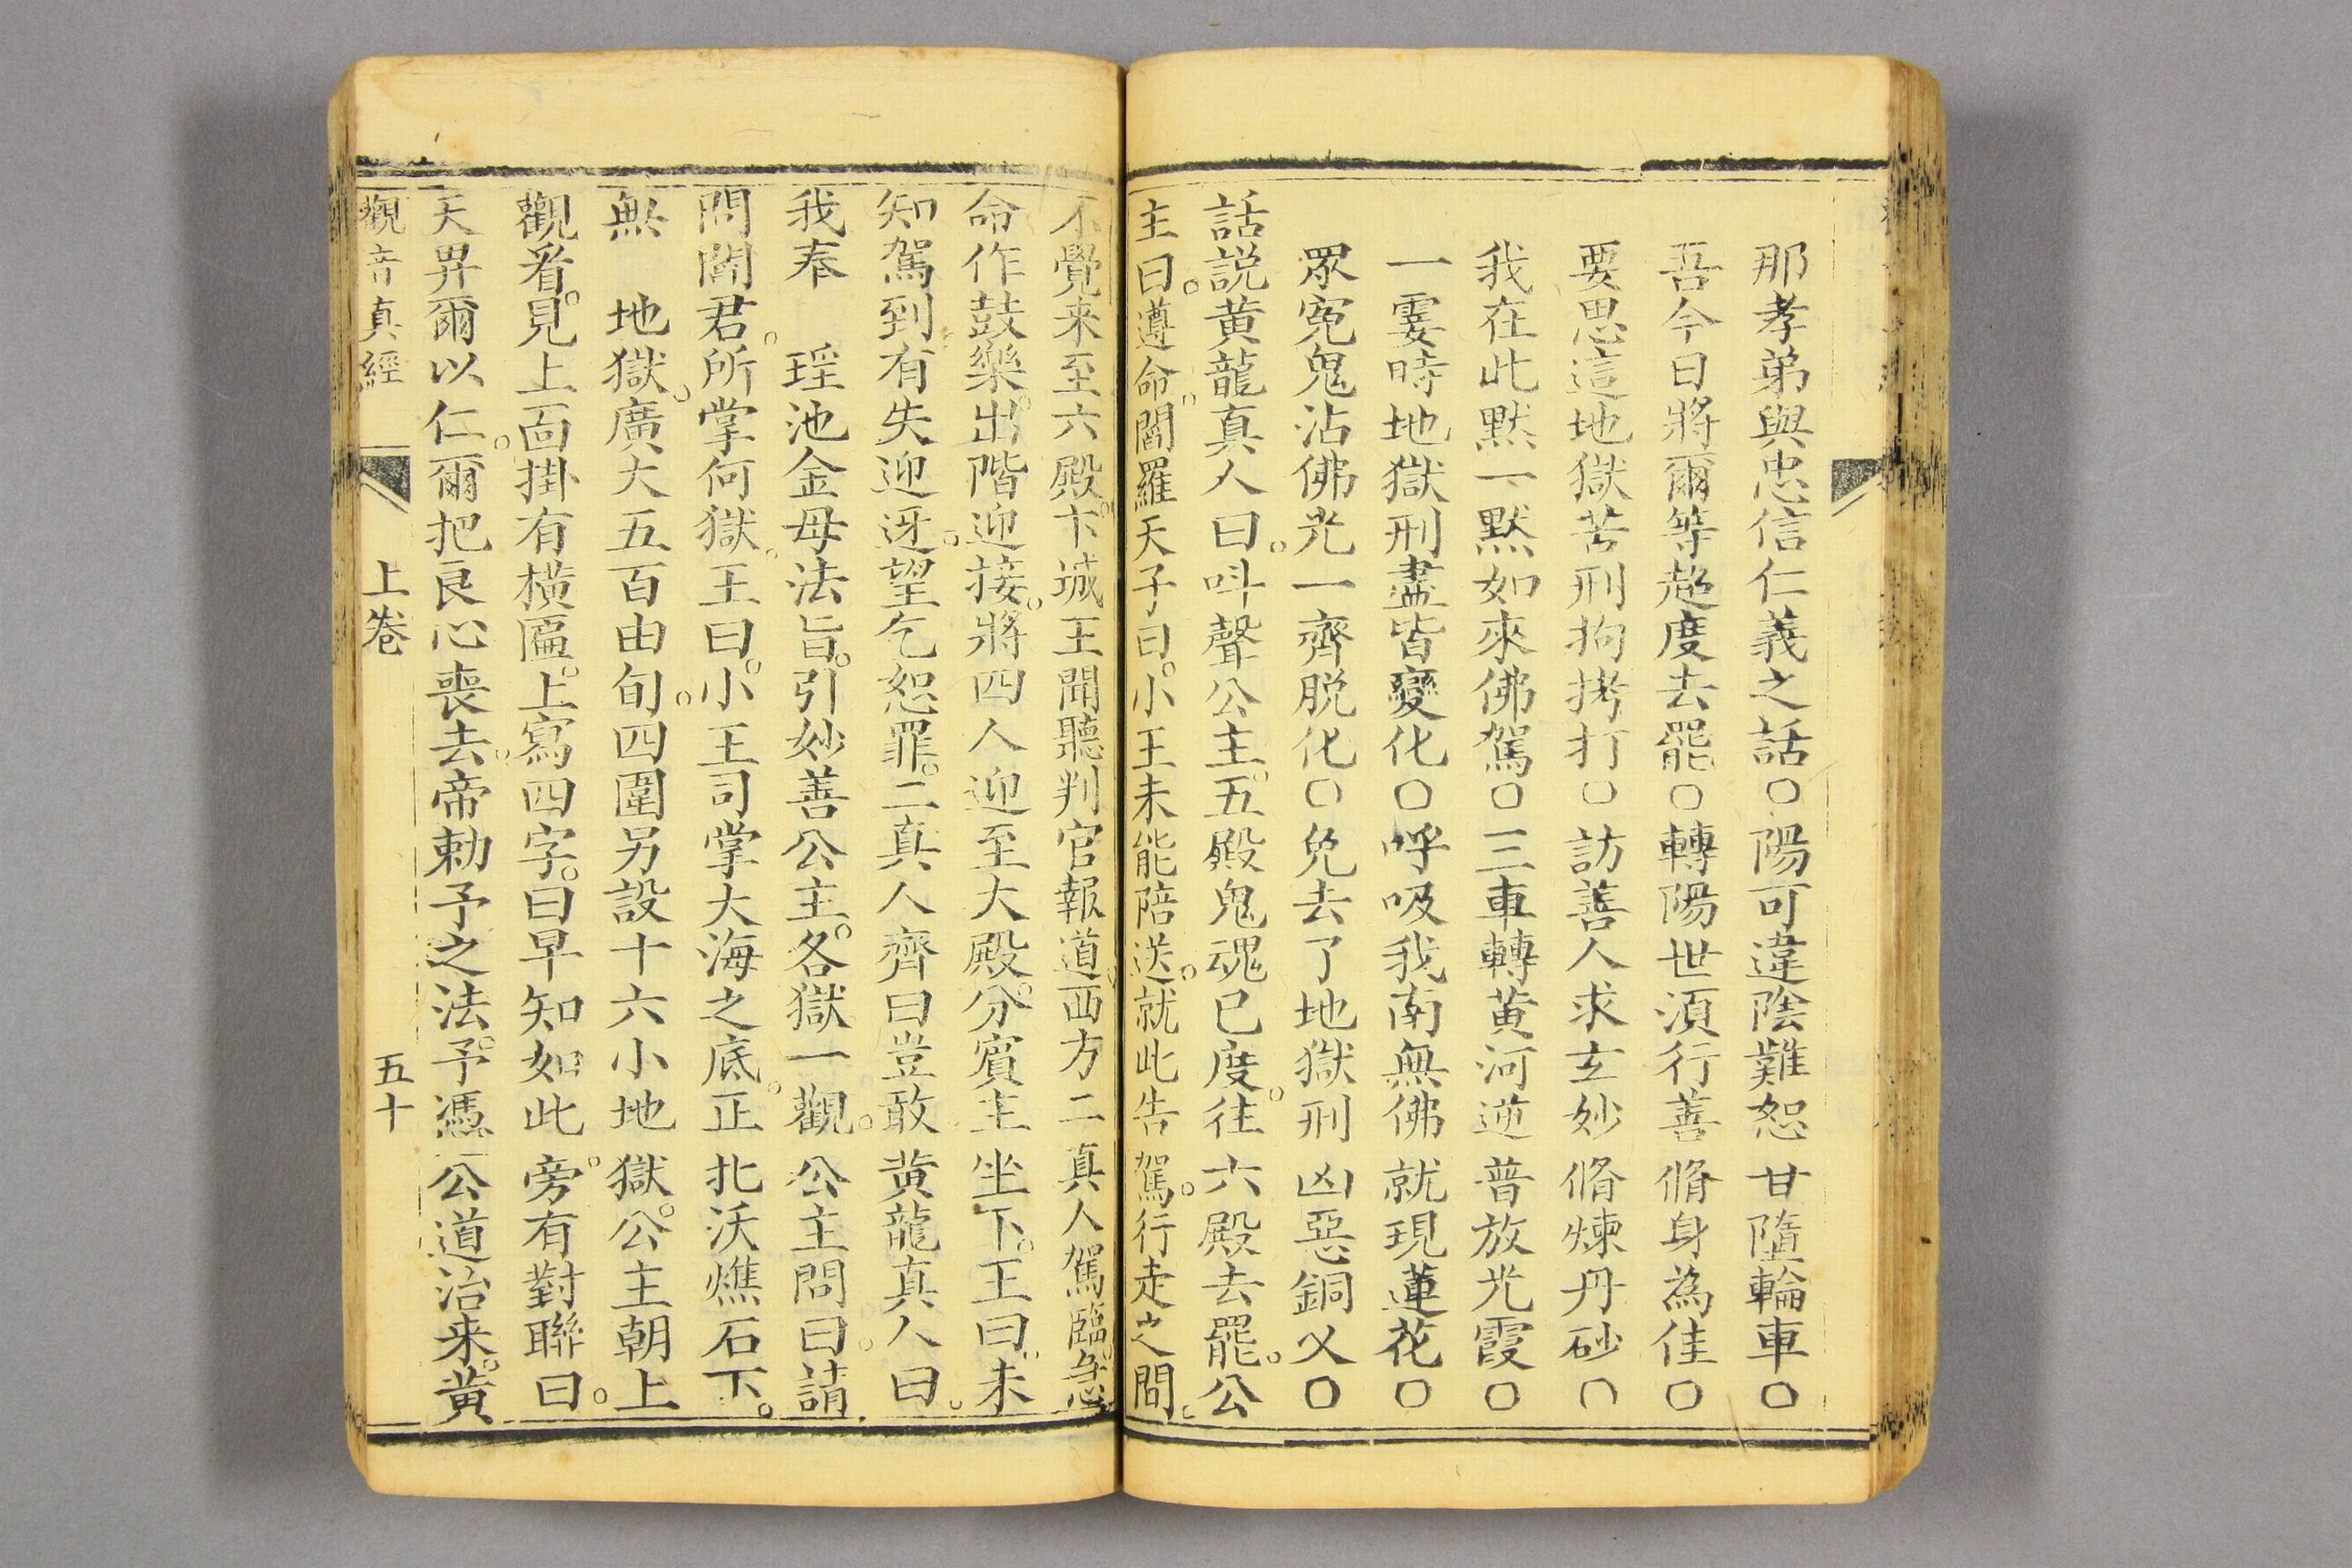 那孝弟與忠信仁義之話○陽可違陰難恕甘墮輪車○
吾今日將爾等超度去罷○轉陽世須行善脩身為佳○
要思這地獄苦刑拘拷打○訪善人求玄妙脩煉丹砂○
我在此默一默如來佛駕○三車轉黃河逆普放光霞○
一霎時地獄刑盡皆變化○呼吸我南無佛就現蓮花○
眾寃鬼沾佛光一齊脱化○免去了地獄刑凶惡銅义○
話説黄龍真人曰。呌聲公主。五殿鬼魂已度。往六殿去罷。公
主曰。遵命。閻羅天子曰。小王未能陪送。就此告駕。行走之間。
不覺来至六殿。卞城王聞聽判官報道。西方二真人駕臨。急
命作鼓樂。出階迎接。將四人迎至大殿。分賓主坐下。王曰。未
知駕到有失迎迓。望乞恕罪。二真人齊曰豈敢黄龍真人曰。
我奉瑶池金母法旨。引妙善公主。各獄一觀。公主問曰。請
問閻君。所掌何獄。王曰。小王司掌大海之底。正北沃燋石下。
無地獄。廣大五百由旬。四圍另設十六小地獄。公主朝上
觀看。見上面掛有橫匾。上寫四字。曰早知如此。旁有對聯曰。
天畀爾以仁。爾把良心喪去。帝勅予之法。予憑公道治来。黄
觀音真經 上卷 五十